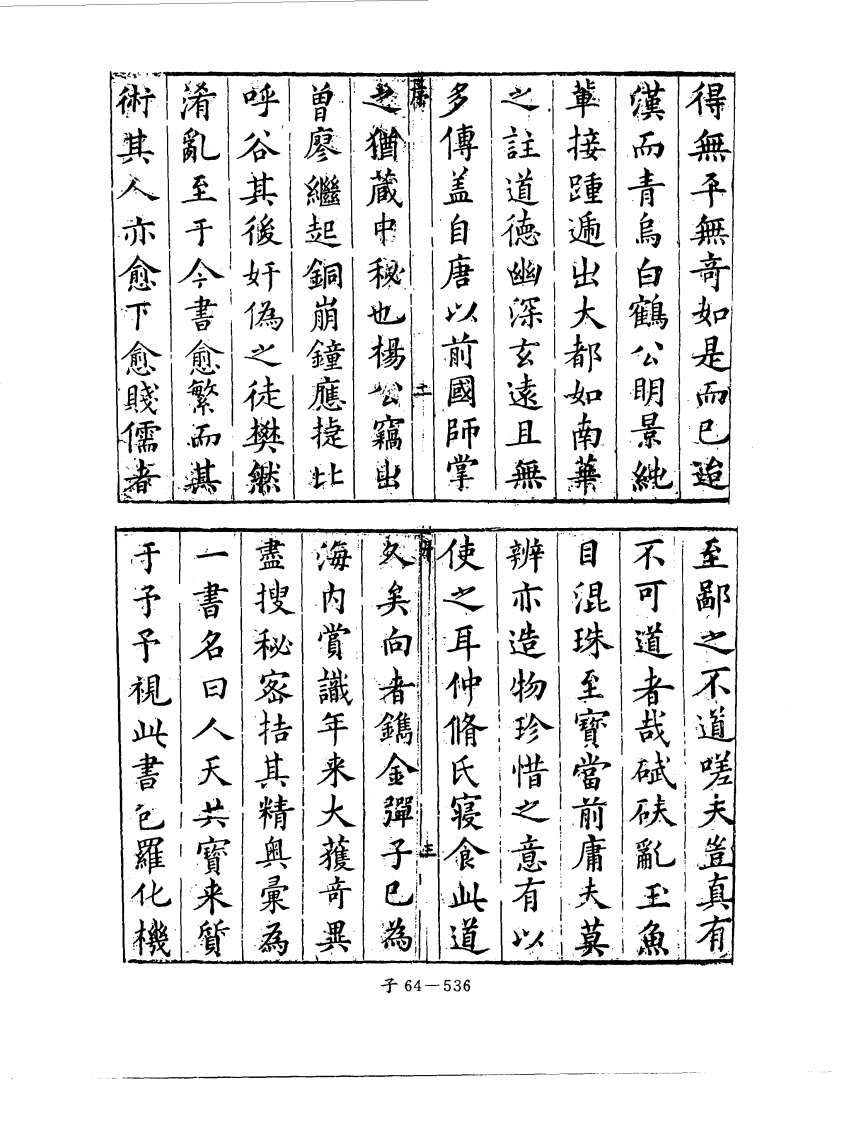 得無平無奇如是而已迨
漢而青烏白鶴公明景純
輩接踵遞出大都如南華
之註道德幽深玄遠且無
多傳蓋自唐以前國師掌
之猶藏中秘也楊公竊出
曾廖繼起銅崩鐘應捷比
呼谷其後奸偽之徒樊然
淆亂至于今書愈繁而其
術其人亦愈下愈賤儒者
至鄙之不道嗟夫豈真有
不可道者哉碔砆亂玉魚
目混珠至寶當前庸夫莫
辨亦造物珍惜之意有以
使之耳仲脩氏寢食此道
久矣向者鐫金彈子已為
海內賞識年来大獲奇異
盡搜秘密拮其精奧彙為
一書名曰人天共寶来質
于予予視此書包羅化機
子 64－536